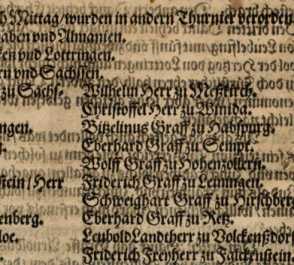 Mittag/wurden in andern Thurnier verorden
aben vnd Almanien.
en vnd Lottringen.
rn vnd Sachssen.
zu Sachs- Wilhelm Herr zu Meßkirch.
Christoffel Herr zu Winda.
ngen. Bitzelinus Graff zu Habspurg.
Eberhard Graff zu Sempt.
Wolff Graff zu Hohenzollern.
stein/Herr Friderich Graff zu Leiningen.
Schweighart Graff zu Hirschberg
enberg. Eberhard Graff zu Retz.
loe. Leupold Landtherr zu Volckenßdorf
Friderich Freyherr zu Falckenstein.